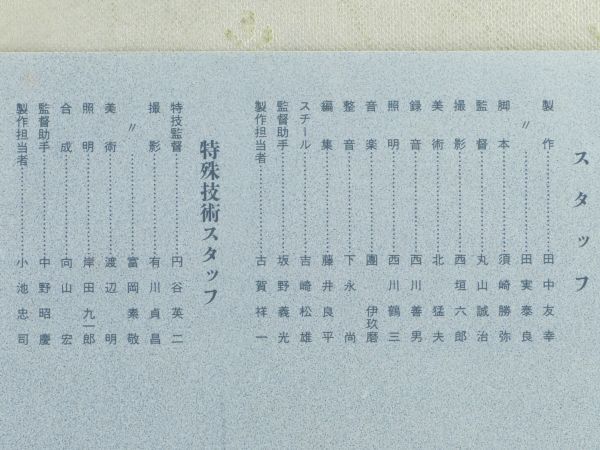 スタッフ
製作……………田中友幸
〃……………田実泰良
脚本……………須崎勝弥
監督……………丸山誠治
撮影……………西垣六郎
美術……………北猛夫
録音……………西川善男
照明……………西川鶴三
音楽……………團伊玖磨
整音……………下永尚
編集……………藤井良平
スチール……………吉崎松雄
監督助手……………坂野義光
製作担当者……………古賀祥一
特殊技術スタッフ
特技監督……………円谷英二
撮影……………有川貞昌
〃……………富岡素敬
美術……………渡辺明
照明……………岸田九一郎
合成……………向山宏
監督助手……………中野昭慶
製作担当者……………小池忠司